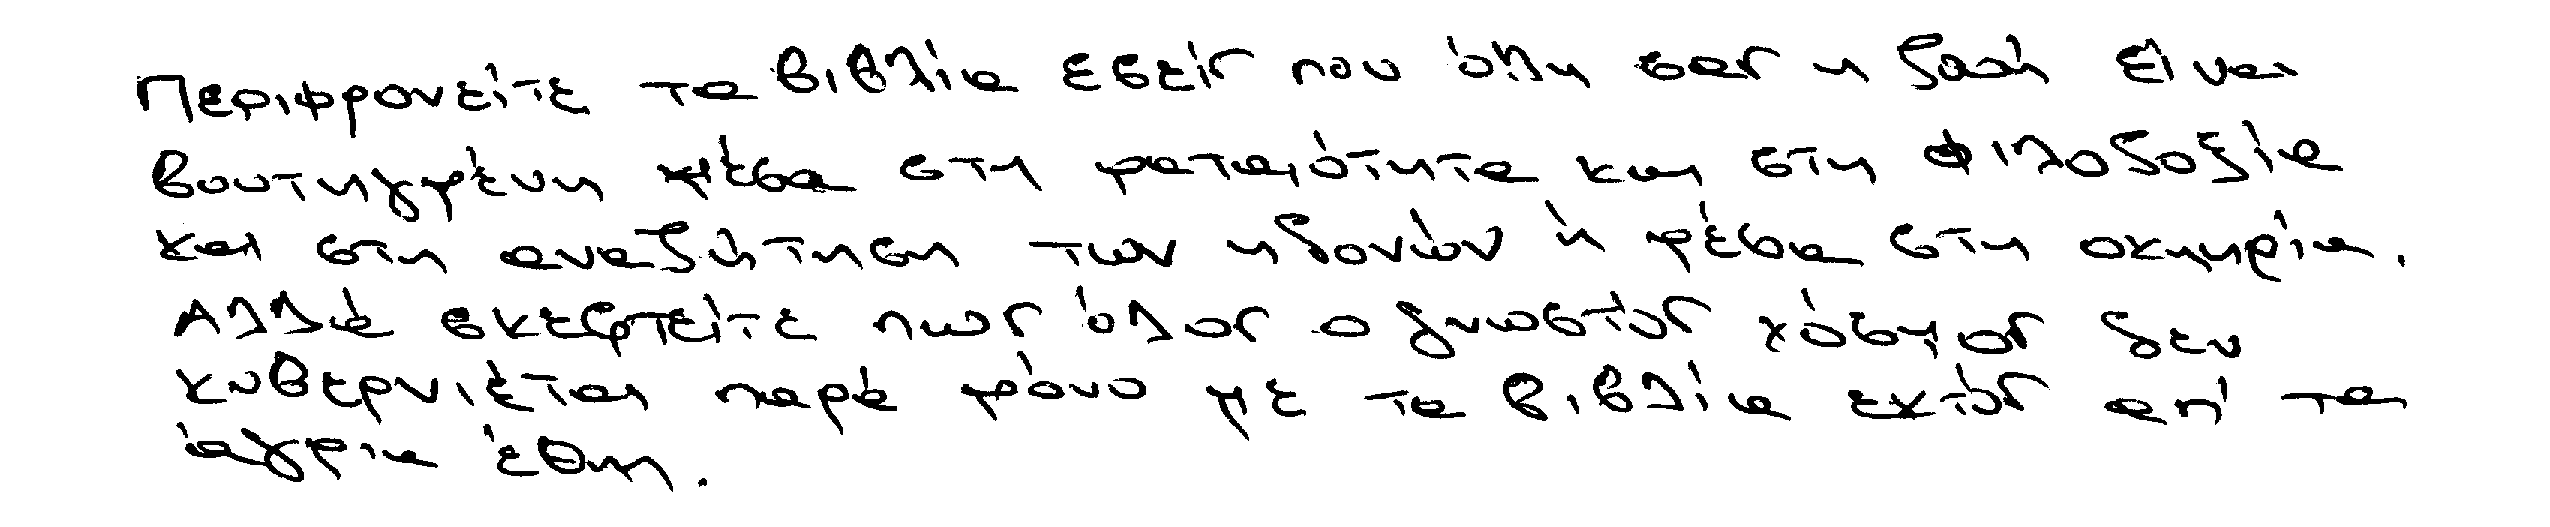 Περιφρονείτε τα βιβλία εσείς που όλη σας η ζωή είναι
βουτηγμένη μέσα στη ματαιότητα και στη φιλοδοξία
και στη αναζήτηση των ηδονών ή μέσα στη οκνηρία.
Αλλά σκεφτείτε πως όλος ο γνωστός κόσμος δεν
κυβερνιέται παρά μόνο με τα βιβλία εκτός απ' τα
άγρια έθνη.